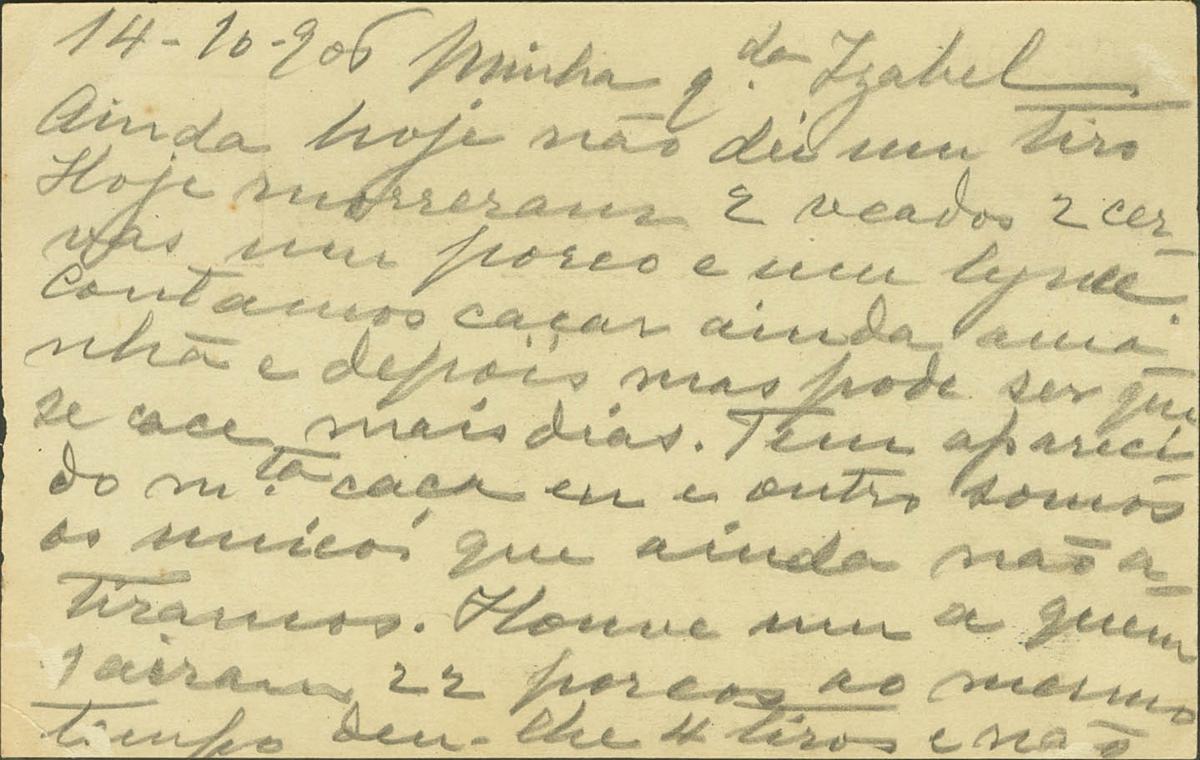 14-10-906 Minha q.da Izabel
Ainda hoje não dei um tiro
Hoje morreram 2 veados 2 cer-
vas um porco e um lynce.
Contamos caçar ainda ama
nhã e depois mas pode ser que
se cace mais dias. Tem apareci
do m.ta caça eu e outro somos
os unicos que ainda não a-
tiramos. Houve um a quem
sairam 22 porcos ao mesmo
tempo deu-lhe 4 tiros e não